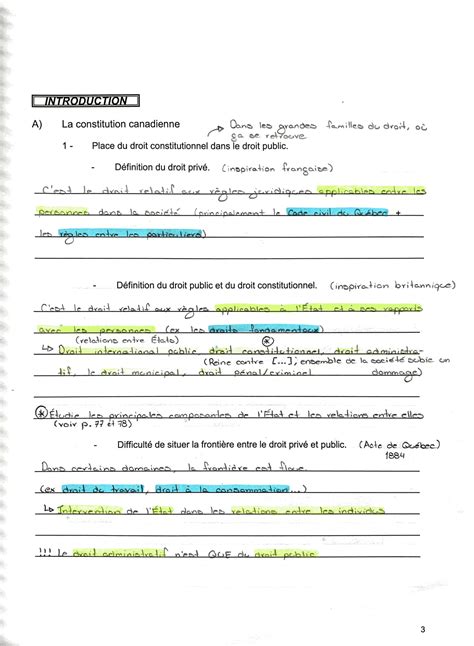 INTRODUCTION
A) La constitution canadienne
Dans les grandes familles du droit, où
ça se retrouve
1 - Place du droit constitutionnel dans le droit public.
- Définition du droit privé. (inspiration française)
C'est le droit relatif aux règles juridiques applicables entre les
personnes dans la société (principalement le Code civil du Québec +
les règles entre les particuliers)
- Définition du droit public et du droit constitutionnel. (inspiration britannique)
C'est le droit relatif aux règles applicables à l'État et à ses rapports
avec les personnes (ex les droits fondamentaux)
(relations entre États) *
↳ Droit international public, droit constitutionnel, droit administra-
(Reine contre [...], ensemble de la société subie un
tif, le droit municipal, droit pénal/criminel dommage)
* Étudie les principales composantes de l'État et les relations entre elles
(voir p. 77 et 78)
- Difficulté de situer la frontière entre le droit privé et public. (Acte de Québec)
1884
Dans certains domaines, la frontière est floue.
(ex droit du travail, droit à la consommation...)
↳ Intervention de l'État dans les relations entre les individus
!!! le droit administratif n'est QUE du droit public
3